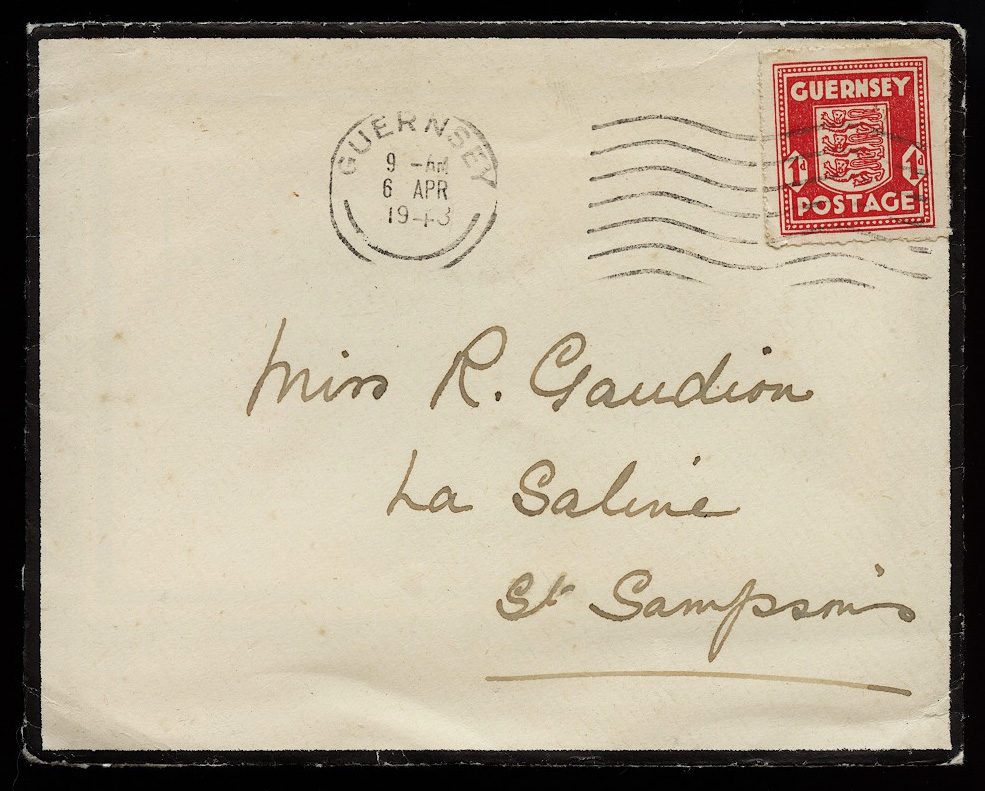 GUERNSEY
9 - AM
6 APR
1943
GUERNSEY
1d 1d
POSTAGE
Miss R. Gaudion
La Saline
St Sampson's